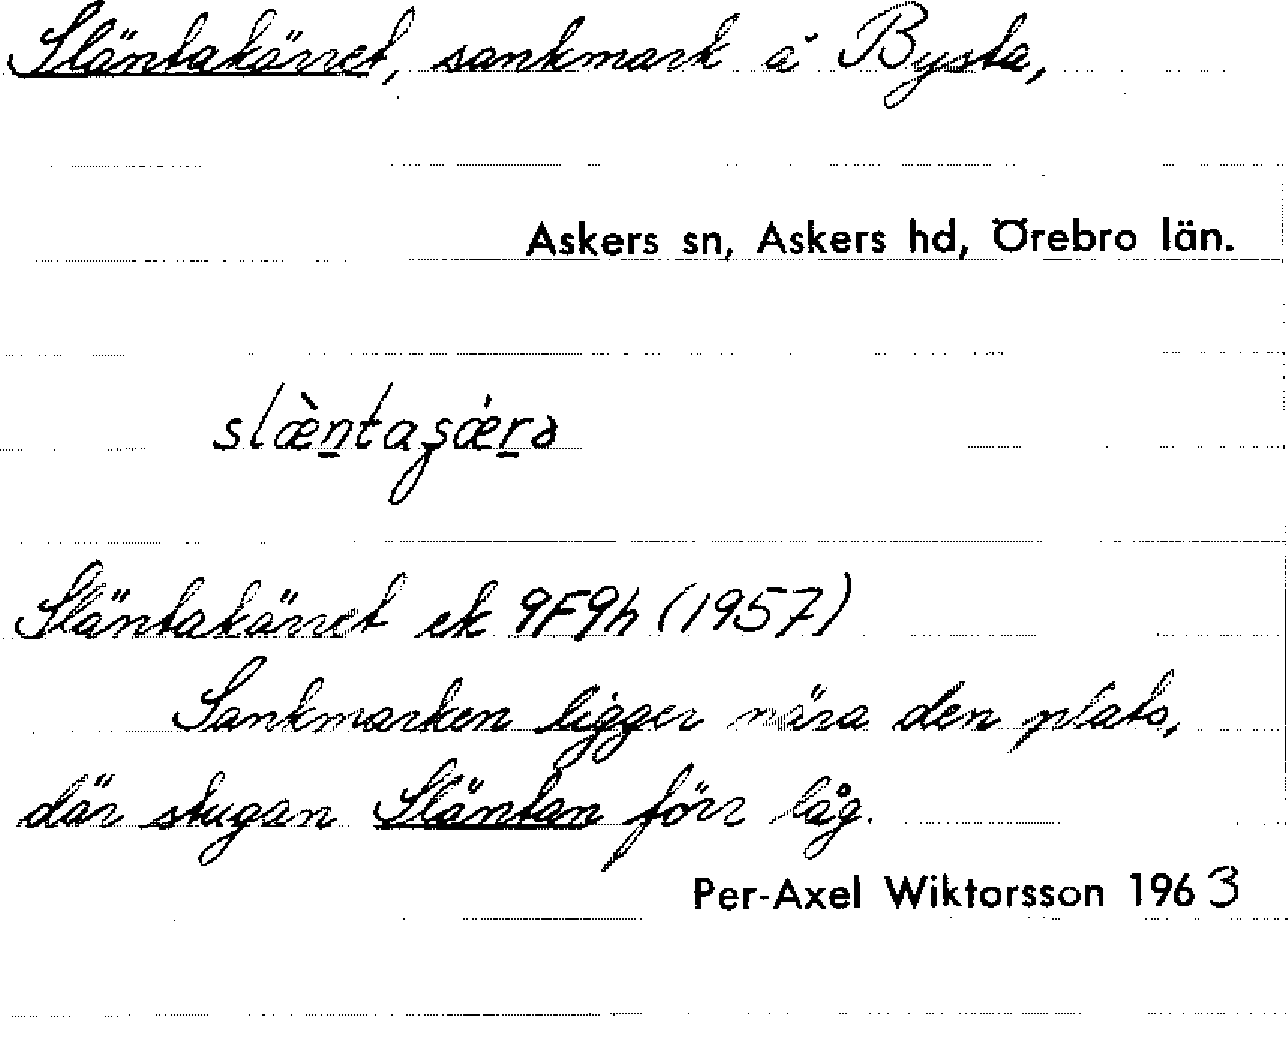 Släntakärret, sankmark å Bysta,
Askers sn, Askers hd, Örebro län.
slæ̀n̲taʂæ̇r̲ə
Släntakärret ek 9F9h (1957)
Sankmarken ligger nära den plats,
där stugan Släntan förr låg.
Per-Axel Wiktorsson 1963